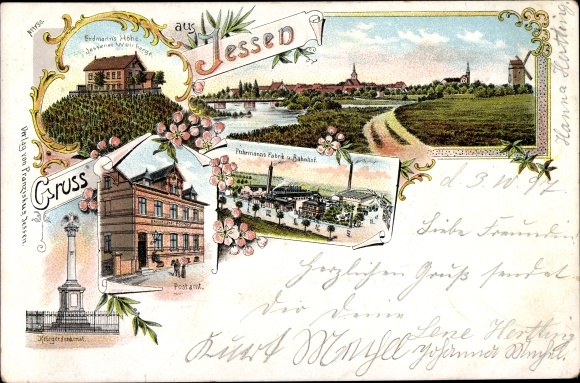 Gruss
aus
Jessen
Erdmanns Höhe
Jessener Weinberge
Fuhrmanns Fabrik u. Bahnhof.
Postamt.
Kriegerdenkmal.
Verlag von Franziskus, Jessen.
d. 3. 10. 97
Liebe Freundin
Herzlichen Gruß sendet
Dir Deine
Lene Hertling
Kurt
Johanna
Hanna Hertling